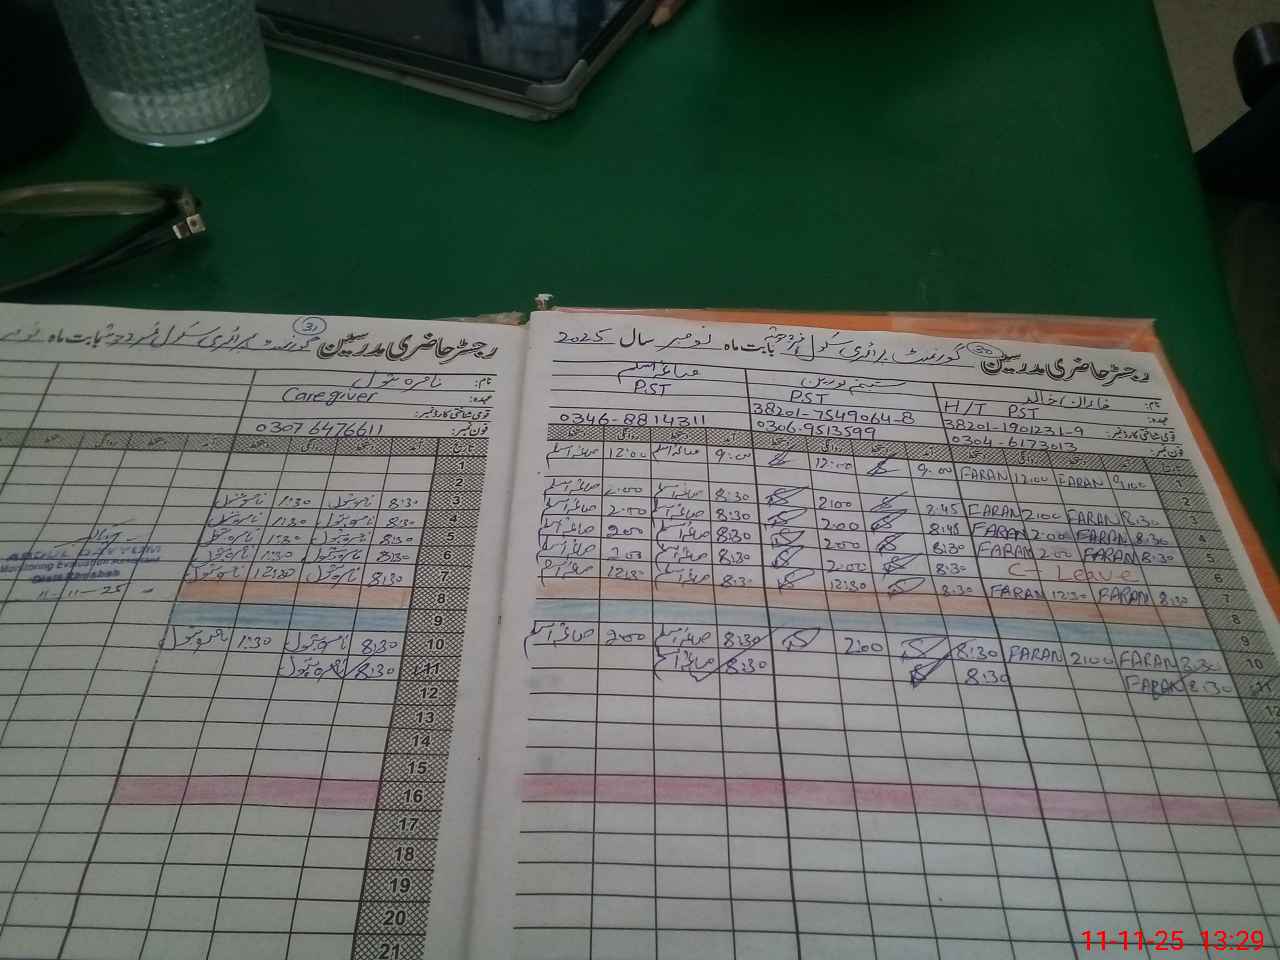 رجسٹر حاضری مدرسین 30 گورنمنٹ پرائری سکول بابت ماہ نومبر سال 2025
نام: فاران خالد
عہدہ: H/T PST
قومی شناختی کارڈ نمبر: 38201-1901231-9
فون نمبر: 0304-6173013
PST
38201-7549064-8
0306-9513599
صائمہ اسلم
PST
0346-8814311
1 9:00 FARAN 12:00 FARAN 9:00 12:00 9:00 صائمہ اسلم 12:00 صائمہ اسلم
2
3 8:30 FARAN 2:00 FARAN 2:45 2:00 8:30 صائمہ اسلم 2:00 صائمہ اسلم
4 8:30 FARAN 2:00 FARAN 8:45 2:00 8:30 صائمہ اسلم 2:00 صائمہ اسلم
5 8:30 FARAN 2:00 FARAN 8:30 2:00 8:30 صائمہ اسلم 2:00 صائمہ اسلم
6 C-Leave 8:30 2:00 8:30 صائمہ اسلم 2:00 صائمہ اسلم
7 8:30 FARAN 12:30 FARAN 8:30 12:30 8:30 صائمہ اسلم 12:30 صائمہ اسلم
8
9
10 8:30 FARAN 2:00 FARAN 8:30 2:00 8:30 صائمہ اسلم 2:00 صائمہ اسلم
11 8:30 FARAN 8:30 8:30 صائمہ اسلم
12
رجسٹر حاضری مدرسین 31 گورنمنٹ پرائری سکول بابت ماہ
نام:
عہدہ: Caregiver
قومی شناختی کارڈ نمبر:
فون نمبر: 0307 6476611
تاریخ
1
2
3 8:30 1:30
4 8:30 1:30
5 8:30 1:30
6 8:30 1:30
7 8:30 12:30
8
9
10 8:30 1:30
11 8:30
12
13
14
15
16
17
18
19
20
21
Monitoring Evaluation Assistant
11-11-25
11-11-25 13:29